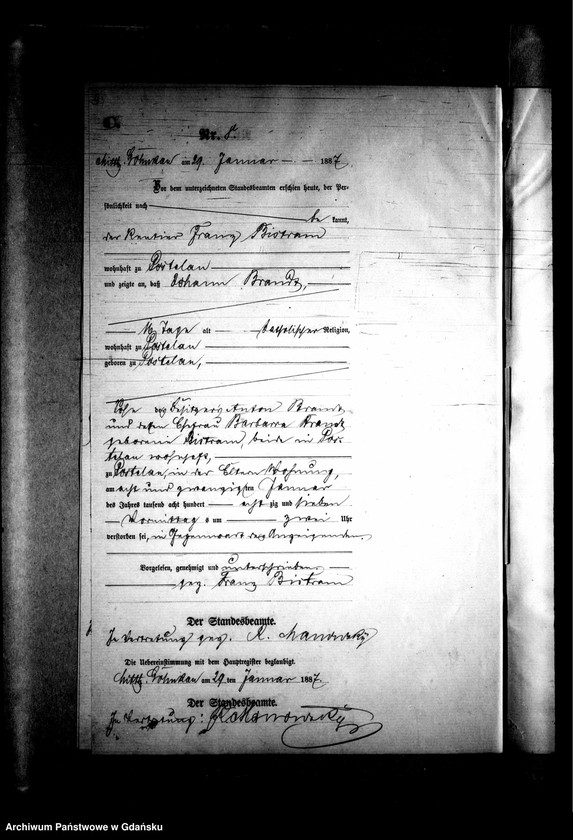 C.
Nr. 8.
am 29. Januar 1887.
Vor dem unterzeichneten Standesbeamten erschien heute, der Per-
sönlichkeit nach
be kannt,
der Rentier Franz Bistram
wohnhaft zu Postelau
und zeigte an, daß Johann Brandt,
Tage alt katholischer Religion,
wohnhaft zu Postelau
geboren zu Postelau,
Sohn des Besitzers Anton Brandt
und dessen Ehefrau Barbara Brandt
geborenen Bistram, beide in Pos-
telau wohnhaft,
zu Postelau, in der Eltern Wohnung,
am acht und zwanzigsten Januar
des Jahres tausend acht hundert acht zig und sieben
Vormittag s um zwei Uhr
verstorben sei, in Gegenwart des Anzeigenden
Vorgelesen, genehmigt und unterschrieben
gez. Franz Bistram
Der Standesbeamte.
In Vertretung gez. R. Manowsky
Die Uebereinstimmung mit dem Hauptregister beglaubigt.
am 29 ten Januar 1887.
Der Standesbeamte.
In Vertretung: R Manowsky
Archiwum Państwowe w Gdańsku